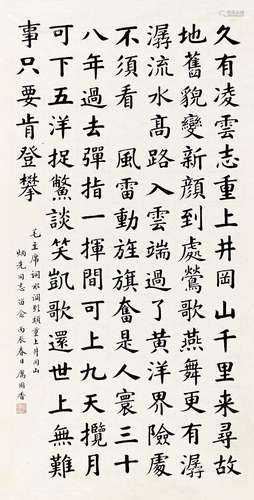 久有凌雲志重上井岡山千里來尋故
地舊貌變新顏到處鶯歌燕舞更有潺
潺流水髙路入雲端過了黃洋界險處
不須看 風雷動旌旗奮是人寰三十
八年過去彈指一揮間可上九天攬月
可下五洋捉鱉談笑凱歌還世上無難
事只要肯登攀
毛主席詞水調歌頭重上井冈山
同志留念 丙辰春日厲国香